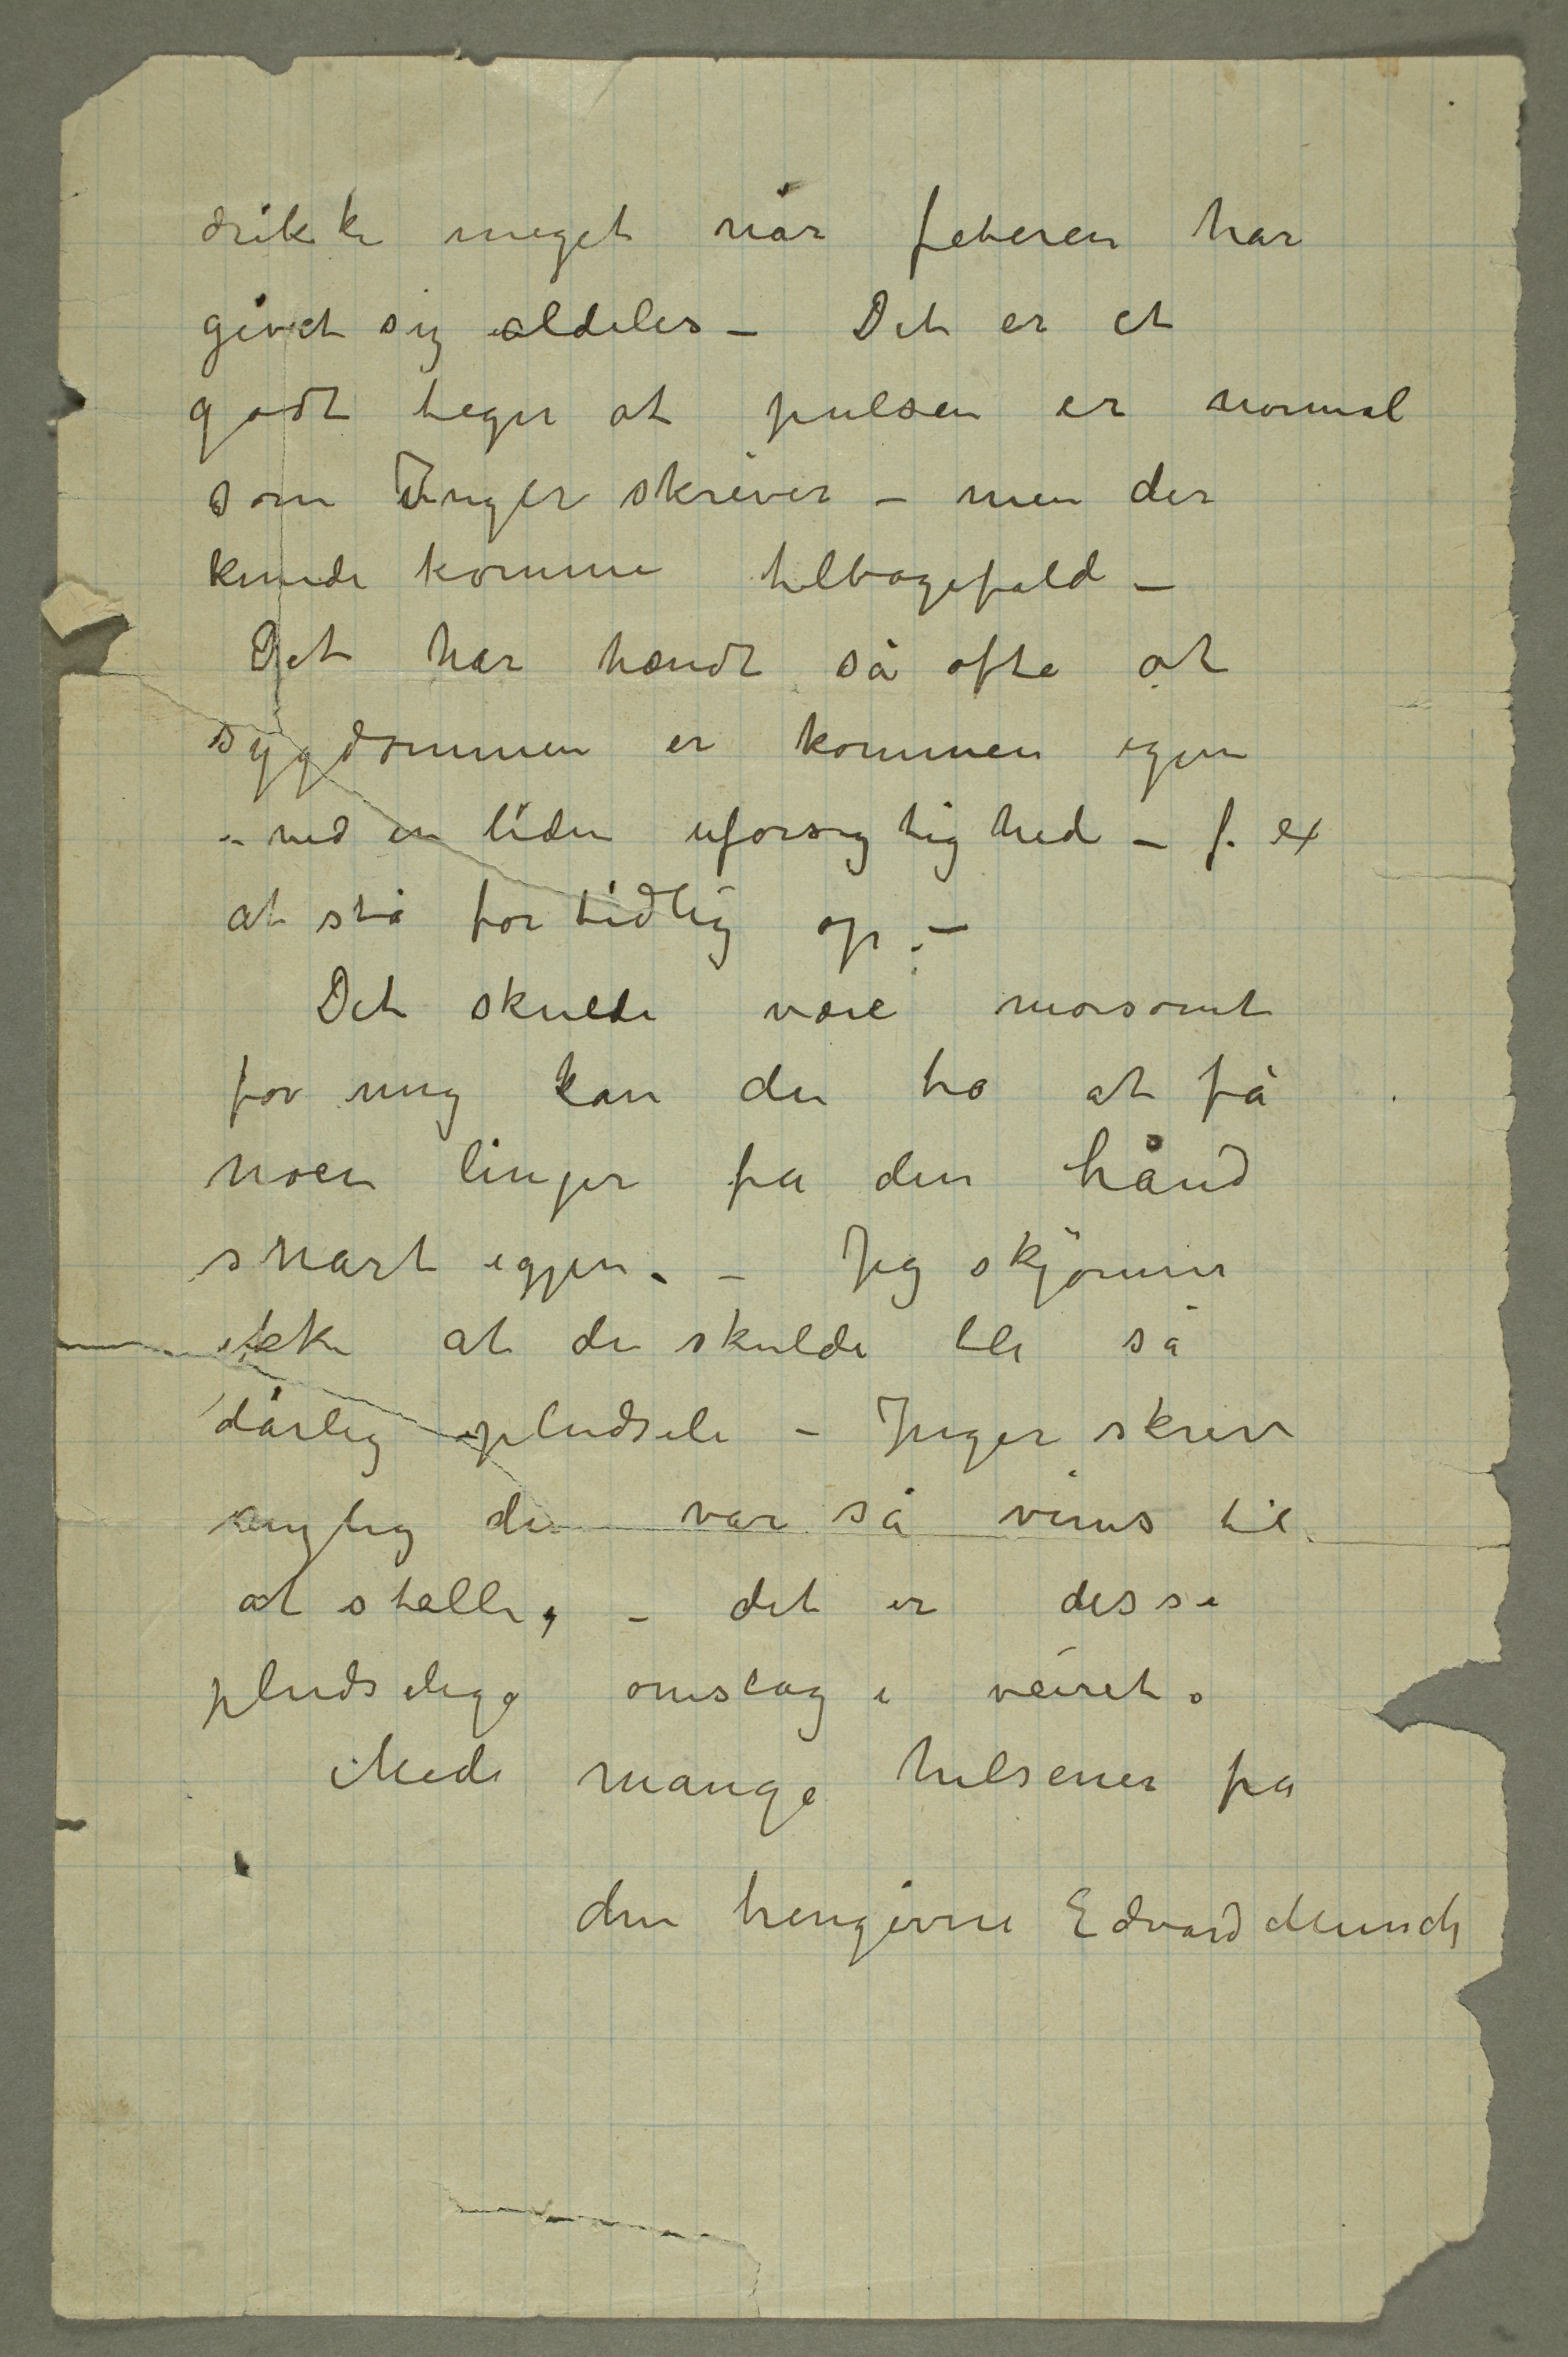 drikke meget når feberen har
givet sig aldeles – Det er et
godt tegn at pulsen er normal
som Inger skriver – men der
kunde komme tilbagefald –
Det har hændt så ofte at
sygdommen er kommen igen
– ved en liden uforsigtighed – f. ex
at stå for tidlig op. –
Det skulde være morsomt
for mig kan du tro at få
noen linjer fra din hånd
snart igjen. – Jeg skjønner
ikke at du skulde bli så
dårlig pludseli – Inger skrev
nylig du var så vims til
at stelle, – det er disse
pludselige omslag i veiret.
Med mange hilsener fra
din hengivne Edvard Munch